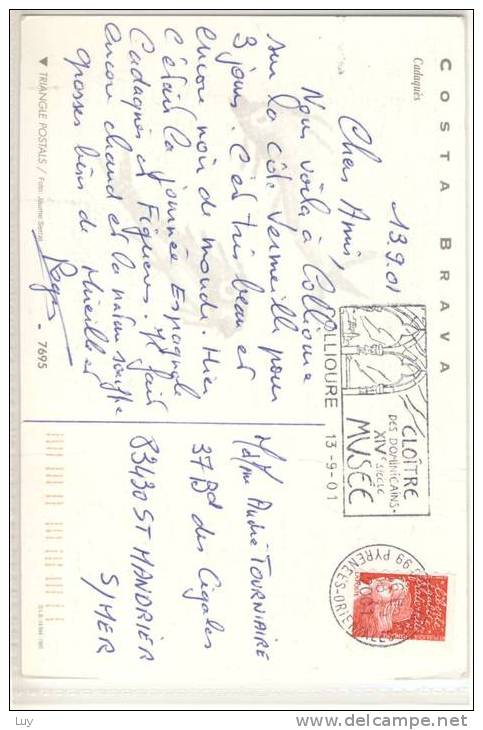 COSTA BRAVA
Cadaqués
13.9.01
Chers Amis,
Nous voilà à Collioure
sur la côte Vermeille pour
3 jours. C'est très beau et
encore noir de monde. Hier
c'était la journée Espagnole
Cadaquès et Figueres. Il fait
encore chaud et la nature souffre
grosses bises de Mireille et
Roger
▼ TRIANGLE POSTALS / Foto: Jaume Serrat
- 7695
COLLIOURE 13-9-01
CLOÎTRE
DES DOMINICAINS
XIVe SIECLE
MUSÉE
66 PYRENEES-ORIENTALES
M/Mme André TOURNIAIRE
37 Bd des Cigales
83430 ST MANDRIER
S/MER
Luy
www.delcampe.net